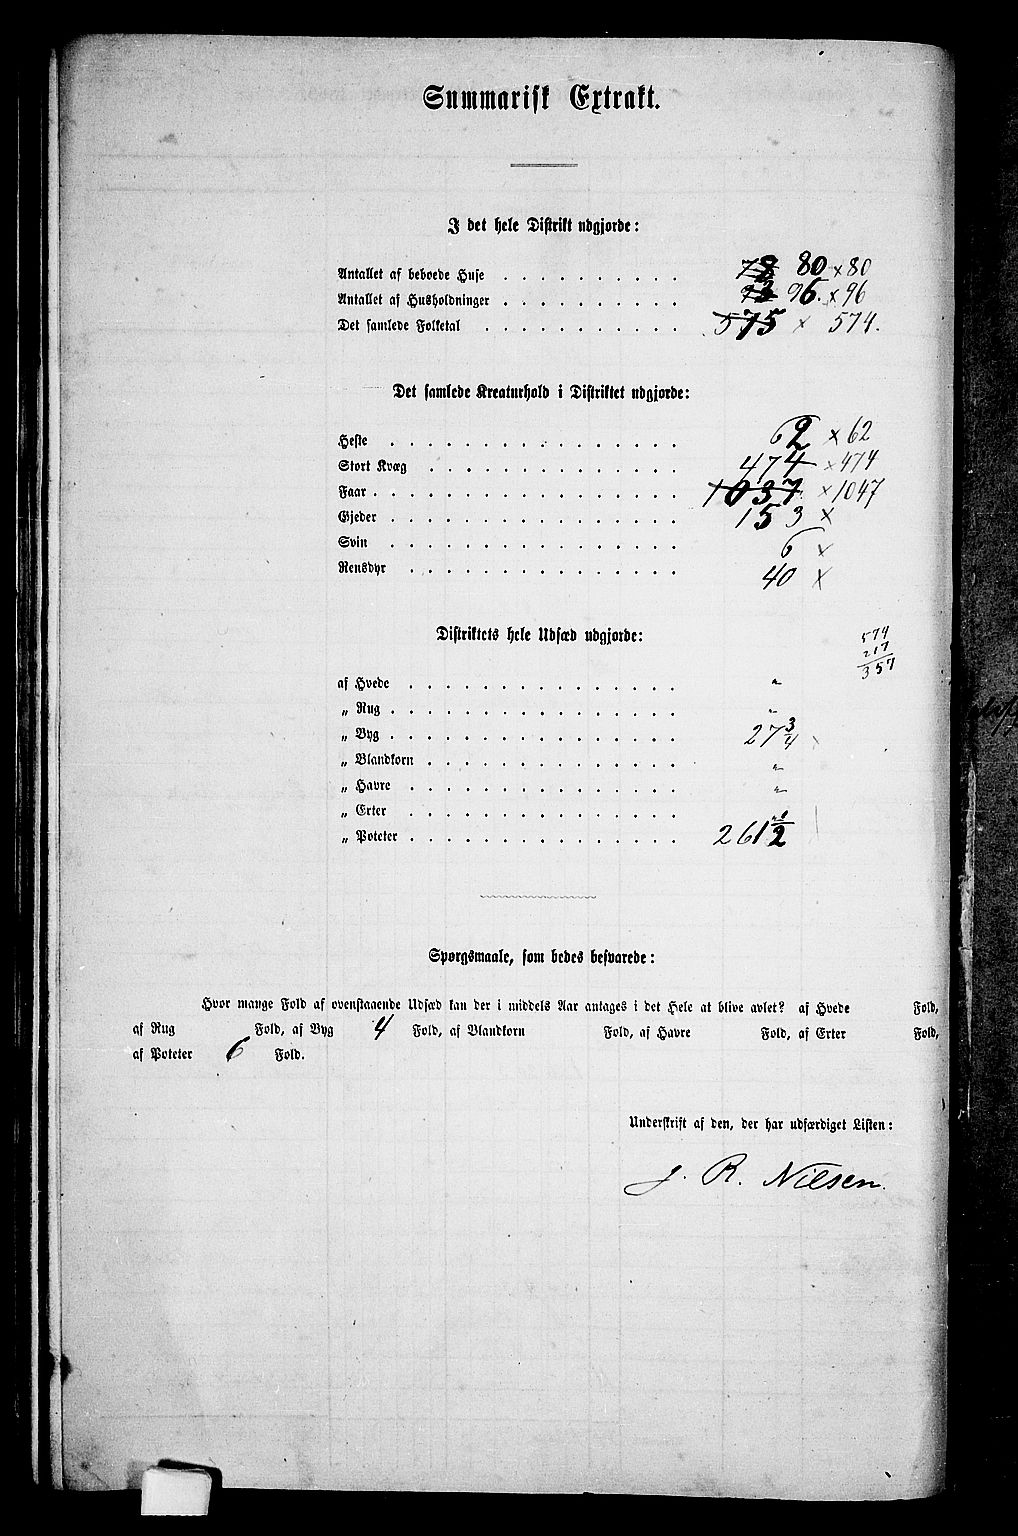 Summarisk Extrakt.
I det hele Distrikt udgjorde:
Antallet af beboede Huse . . . . . . . . . . 78 80 × 80
Antallet af Husholdninger . . . . . . . . . . 96. × 96
Det samlede Folketal . . . . . . . . . . . 575 × 574.
Det samlede Kreaturhold i Distriktet udgjorde:
Heste . . . . . . . . . . . . . . . . 62 × 62
Stort Kvæg . . . . . . . . . . . . . . 474 × 474
Faar . . . . . . . . . . . . . . . . . 1037 × 1047
Gjeder . . . . . . . . . . . . . . . . 153 ×
Svin . . . . . . . . . . . . . . . . 6 ×
Rensdyr . . . . . . . . . . . . . . . 40 ×
Distriktets hele Udsæd udgjorde:
574
217
357
af Hvede . . . . . . . . . . . . . . . "
„ Rug . . . . . . . . . . . . . . . . "
„ Byg . . . . . . . . . . . . . . . . 27 3/4
„ Blandkorn . . . . . . . . . . . . . . "
„ Havre . . . . . . . . . . . . . . . "
„ Erter . . . . . . . . . . . . . . . "
„ Poteter . . . . . . . . . . . . . . . 261 1/2
Spørgsmaale, som bedes besvarede:
Hvor mange Fold af ovenstaaende Udsæd kan der i middels Aar antages i det Hele at blive avlet? af Hvede Fold,
af Rug Fold, af Byg 4 Fold, af Blandkorn Fold, af Havre Fold, af Erter Fold,
af Poteter 6 Fold.
Underskrift af den, der har udfærdiget Listen:
J. R. Nilsen.